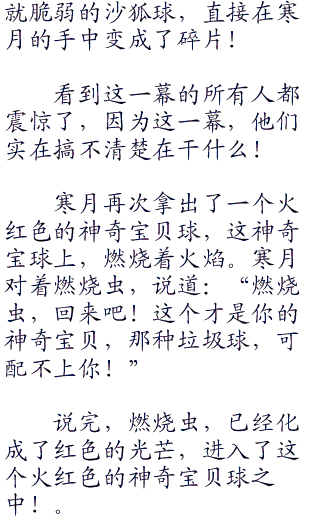 就脆弱的沙狐球，直接在寒
月的手中变成了碎片！
看到这一幕的所有人都
震惊了，因为这一幕，他们
实在搞不清楚在干什么！
寒月再次拿出了一个火
红色的神奇宝贝球，这神奇
宝球上，燃烧着火焰。寒月
对着燃烧虫，说道：“燃烧
虫，回来吧！这个才是你的
神奇宝贝，那种垃圾球，可
配不上你！”
说完，燃烧虫，已经化
成了红色的光芒，进入了这
个火红色的神奇宝贝球之
中！。